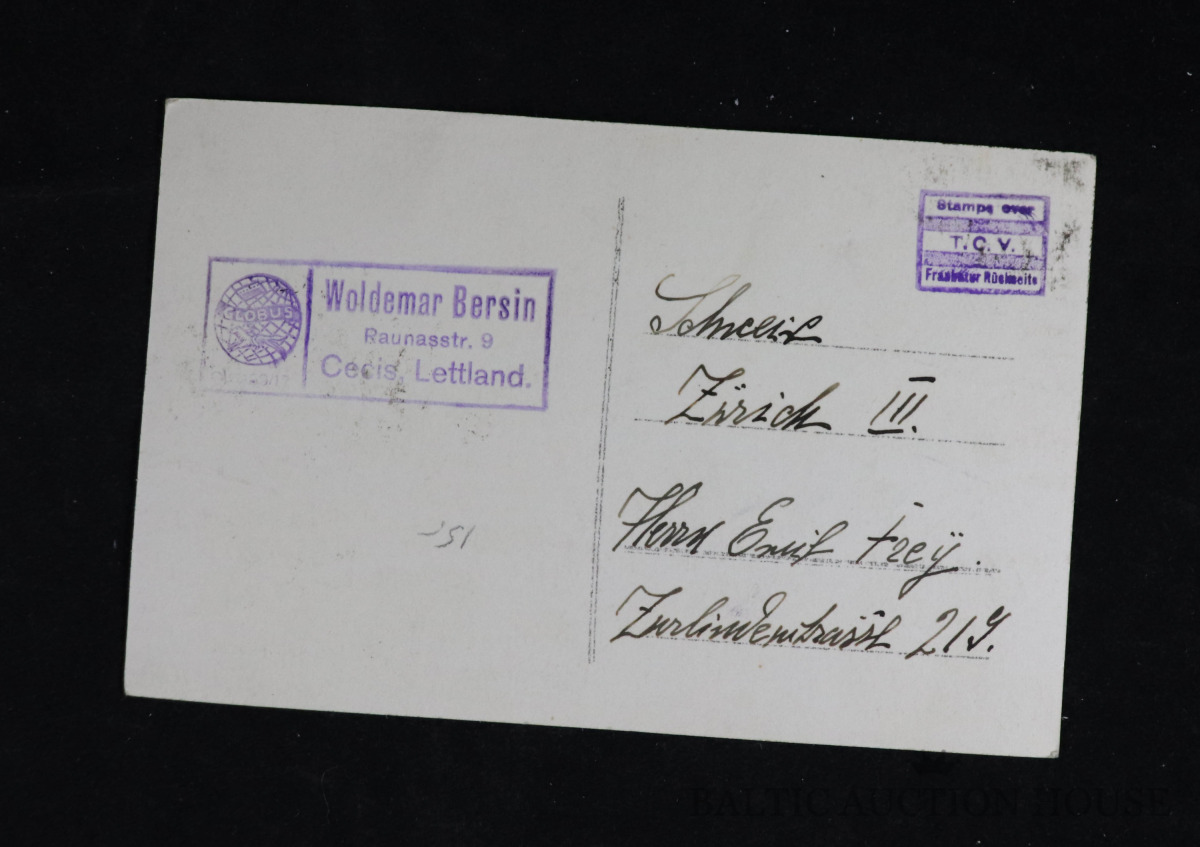 GLOBUS
Woldemar Bersin
Raunasstr. 9
Cecis, Lettland.
Stamps over
T.C.V.
Frankatur Rückseite
Schweiz
Zürich III.
Herrn Emil Frey.
Zurlindenstrasse 219.
BALTIC AUCTION HOUSE